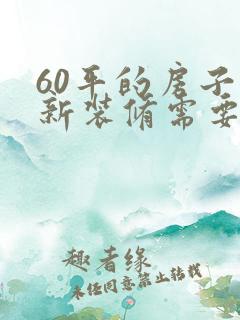 60平的房子
新装修需要
趣者缘
未经同意禁止转载